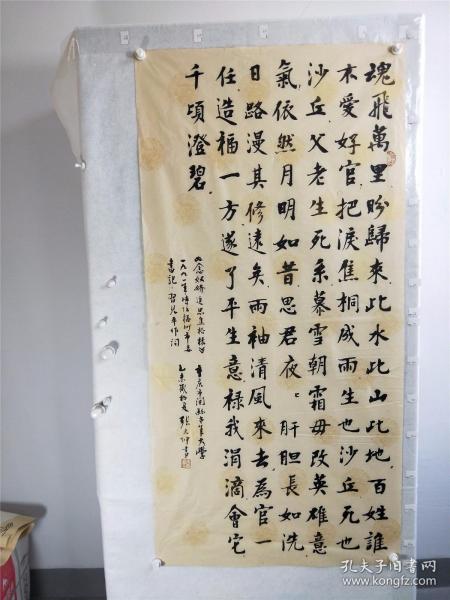 魂飛萬里盼歸來此水此山此地百姓誰
不愛好官把淚焦桐成雨生也沙丘死也
沙丘父老生死系暮雪朝霜毋改英雄意
氣依然月明如昔思君夜〻肝胆長如洗
日路漫其修遠矣兩袖清風來去為官一
任造福一方遂了平生意禄我涓滴會它
千頃澄碧
念奴嬌追思焦裕禄
一九九一年時任福州市委
書記習近平作詞
重庆市開縣老年大學
乙未歲初夏張文仲書
孔夫子旧书网
www.kongfz.com